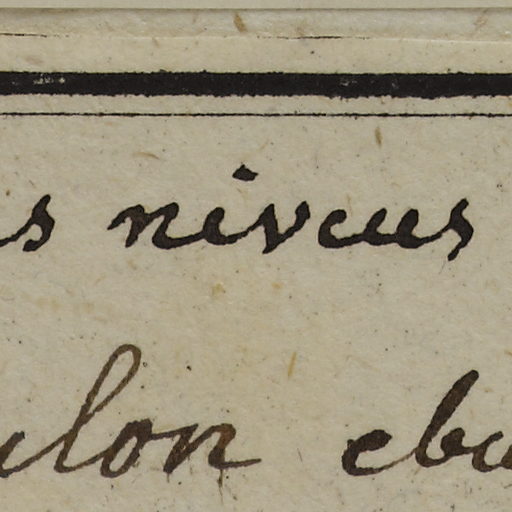 s niveus
ulon ebu